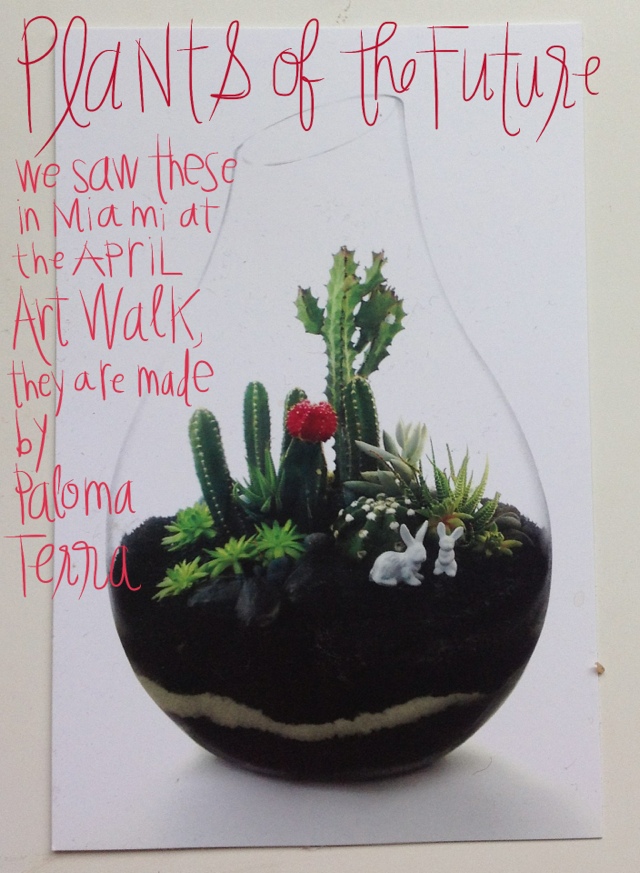 Plants of the Future
we saw these
in Miami at
the APRIL
Art Walk,
they are made
by
Paloma
Terra